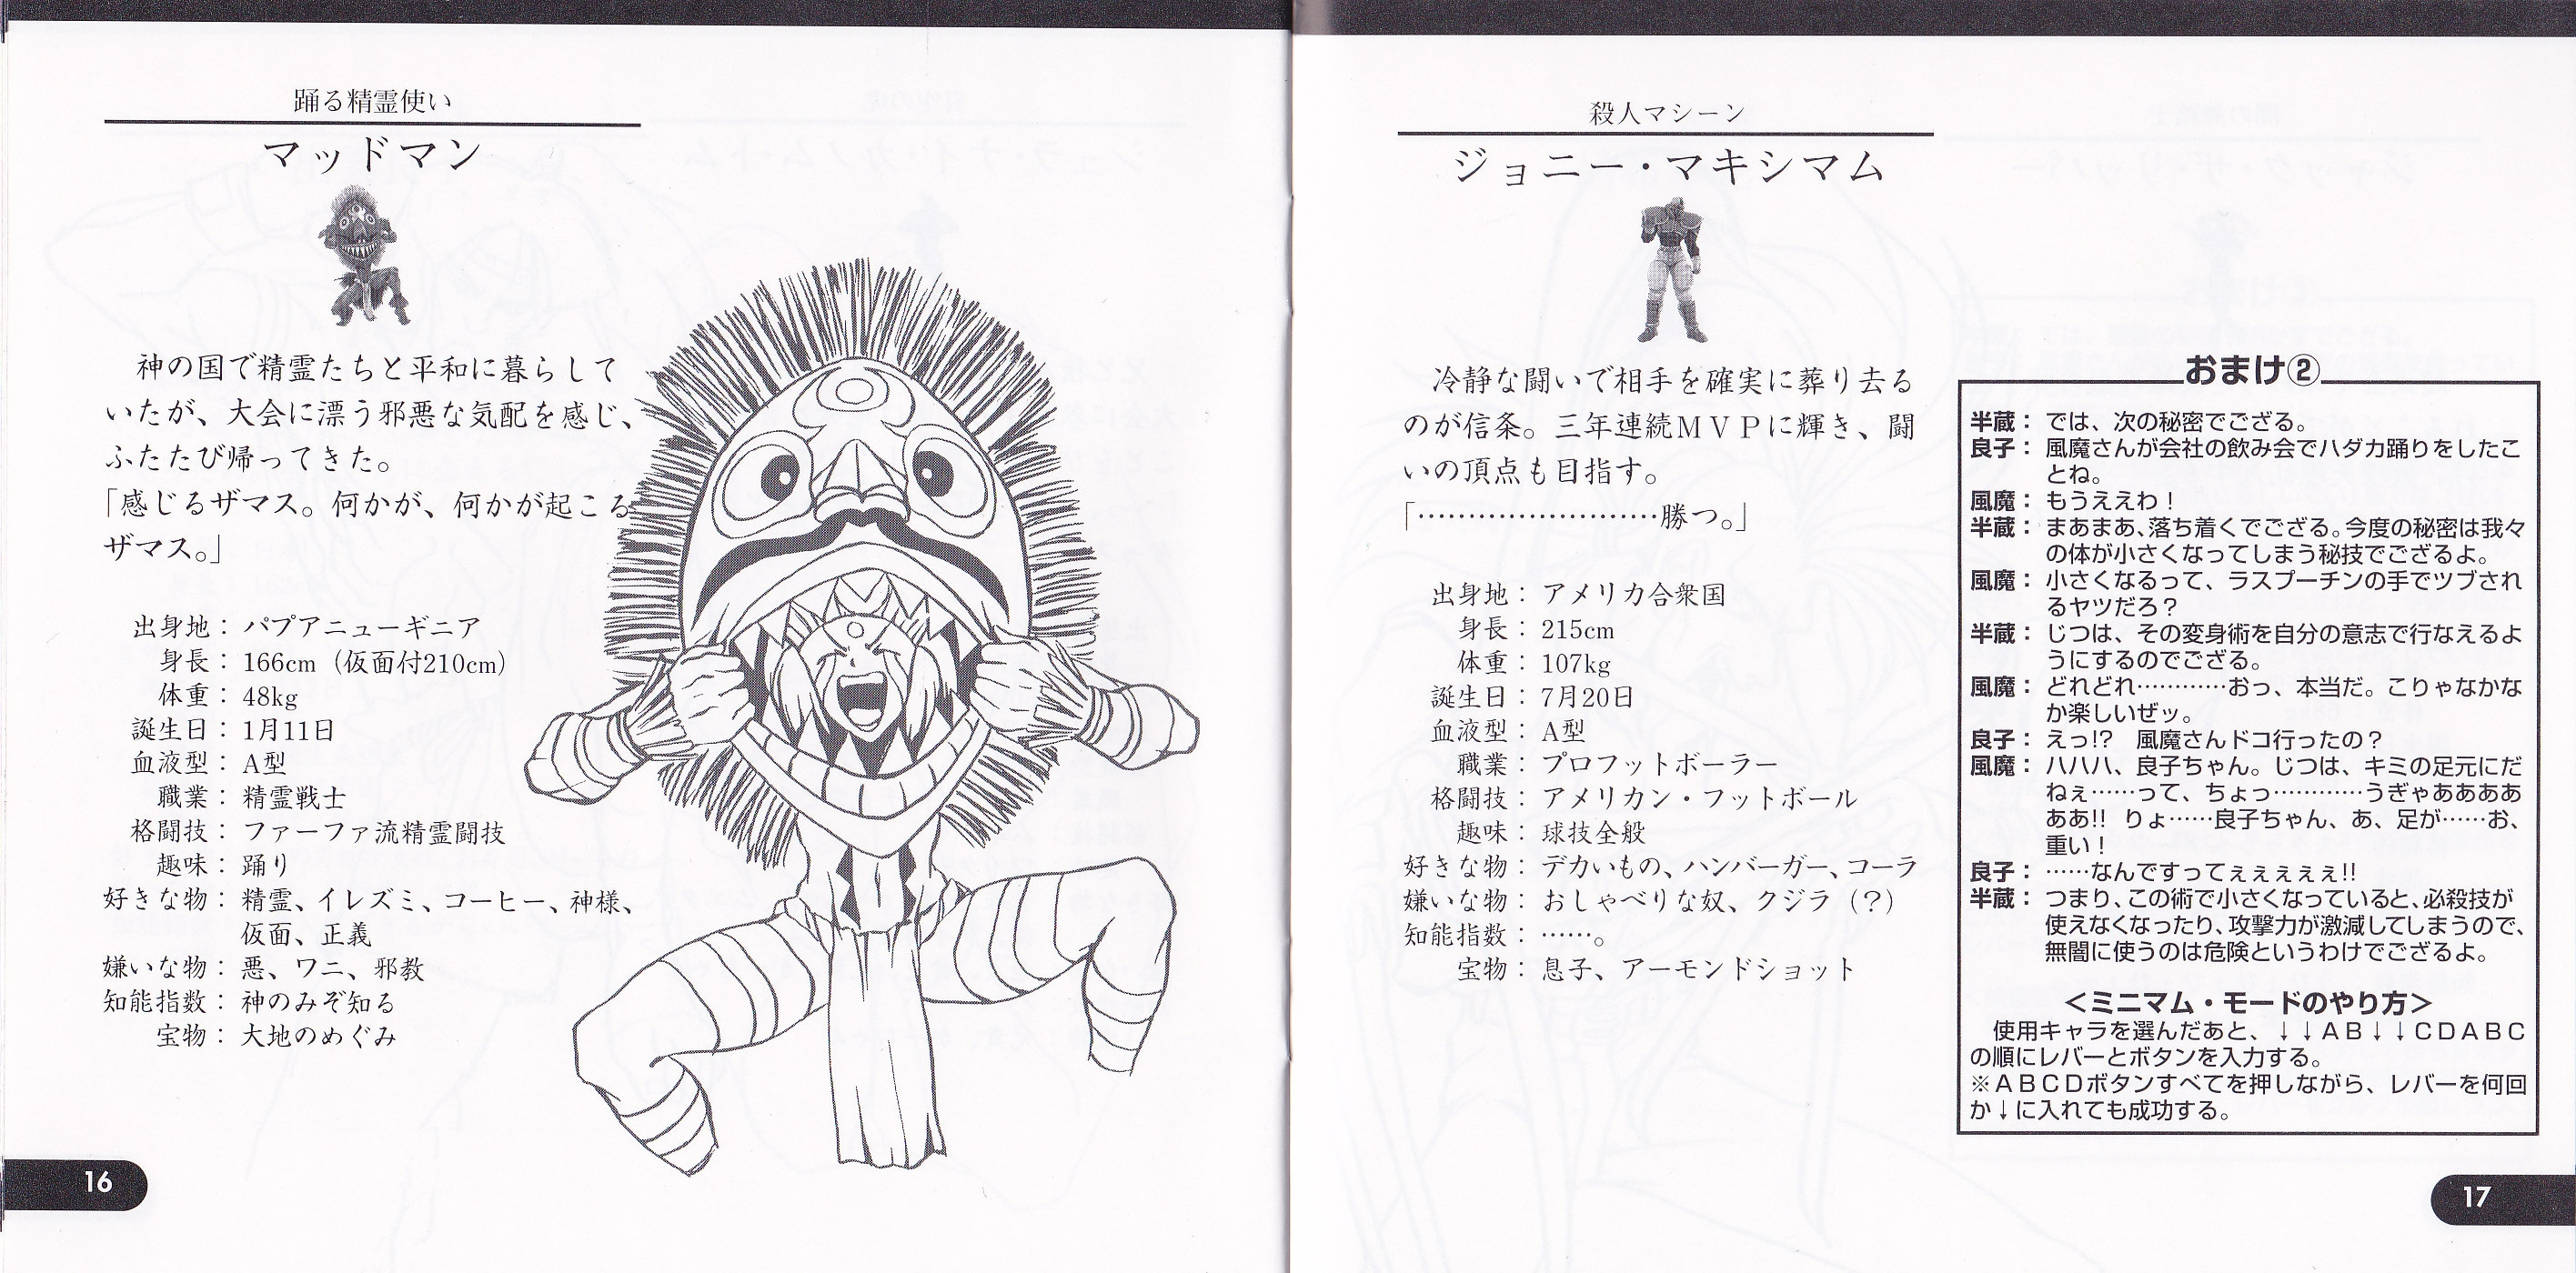 踊る精霊使い
マッドマン
神の国で精霊たちと平和に暮らして
いたが、大会に漂う邪悪な気配を感じ、
ふたたび帰ってきた。
「感じるザマス。何かが、何かが起こる
ザマス。」
出身地：パプアニューギニア
身長：166cm（仮面付210cm）
体重：48kg
誕生日：1月11日
血液型：A型
職業：精霊戦士
格闘技：ファーファ流精霊闘技
趣味：踊り
好きな物：精霊、イレズミ、コーヒー、神様、
仮面、正義
嫌いな物：悪、ワニ、邪教
知能指数：神のみぞ知る
宝物：大地のめぐみ
16
殺人マシーン
ジョニー・マキシマム
冷静な闘いで相手を確実に葬り去る
のが信条。三年連続ＭＶＰに輝き、闘
いの頂点も目指す。
「……………………勝つ。」
出身地：アメリカ合衆国
身長：215cm
体重：107kg
誕生日：7月20日
血液型：A型
職業：プロフットボーラー
格闘技：アメリカン・フットボール
趣味：球技全般
好きな物：デカいもの、ハンバーガー、コーラ
嫌いな物：おしゃべりな奴、クジラ（？）
知能指数：……。
宝物：息子、アーモンドショット
おまけ②
半蔵：では、次の秘密でござる。
良子：風魔さんが会社の飲み会でハダカ踊りをしたこ
とね。
風魔：もうええわ！
半蔵：まあまあ、落ち着くでござる。今度の秘密は我々
の体が小さくなってしまう秘技でござるよ。
風魔：小さくなるって、ラスプーチンの手でツブされ
るヤツだろ？
半蔵：じつは、その変身術を自分の意志で行なえるよ
うにするのでござる。
風魔：どれどれ…………おっ、本当だ。こりゃなかな
か楽しいぜッ。
良子：えっ!?　風魔さんドコ行ったの？
風魔：ハハハ、良子ちゃん。じつは、キミの足元にだ
ねぇ……って、ちょっ…………うぎゃああああ
ああ!!　りょ……良子ちゃん、あ、足が……お、
重い！
良子：……なんですってぇぇぇぇぇ!!
半蔵：つまり、この術で小さくなっていると、必殺技が
使えなくなったり、攻撃力が激減してしまうので、
無闇に使うのは危険というわけでござるよ。
＜ミニマム・モードのやり方＞
使用キャラを選んだあと、↓↓ＡＢ↓↓ＣＤＡＢＣ
の順にレバーとボタンを入力する。
※ＡＢＣＤボタンすべてを押しながら、レバーを何回
か↓に入れても成功する。
17